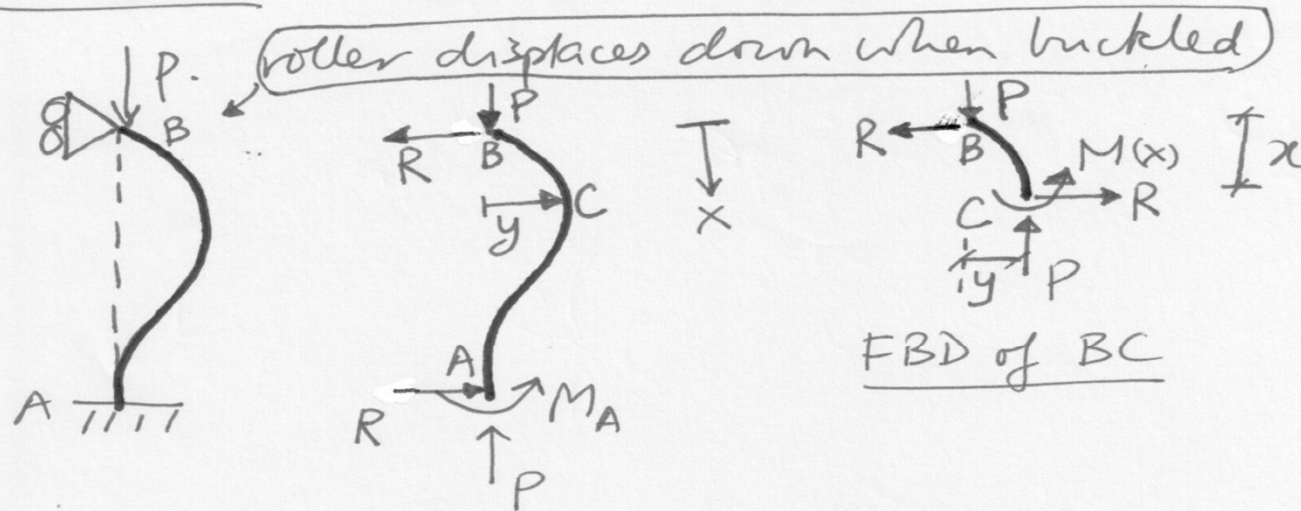 roller displaces down when buckled
P.
B
A
P
R
B
y
C
A
R
M_A
P
x
P
R
B
M(x)
C
R
y
P
x
FBD of BC